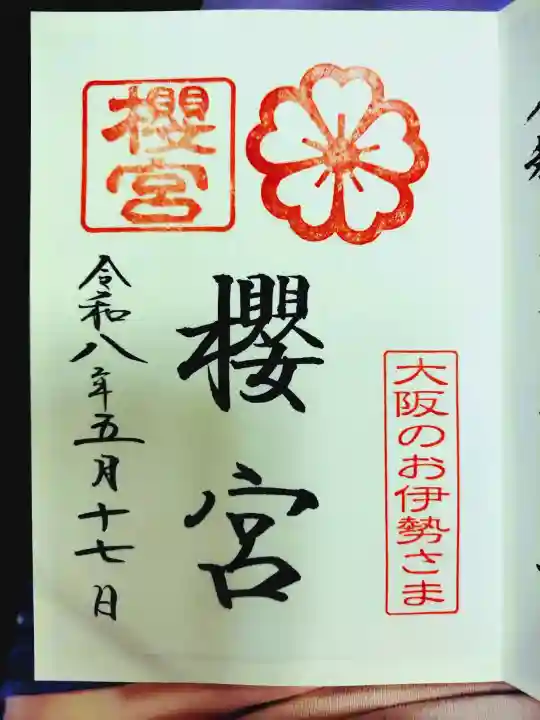 大阪のお伊勢さま
櫻宮
櫻宮
令和八年五月十七日